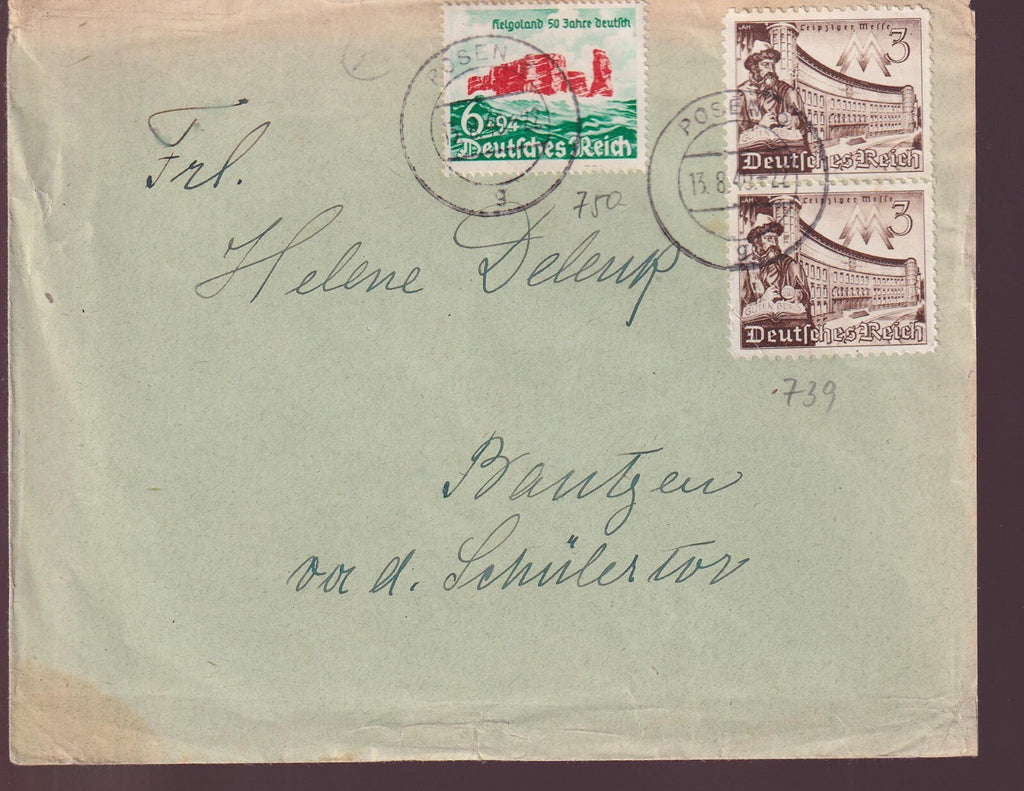 Helgoland 50 Jahre deutsch
6+94
Deutsches Reich
POSEN
g
750
Leipziger Messe
3
Deutsches Reich
POSEN
13.8.40.-22
g
Leipziger Messe
3
Deutsches Reich
739
Frl.
Helene
Bautzen
vor d. Schülertor